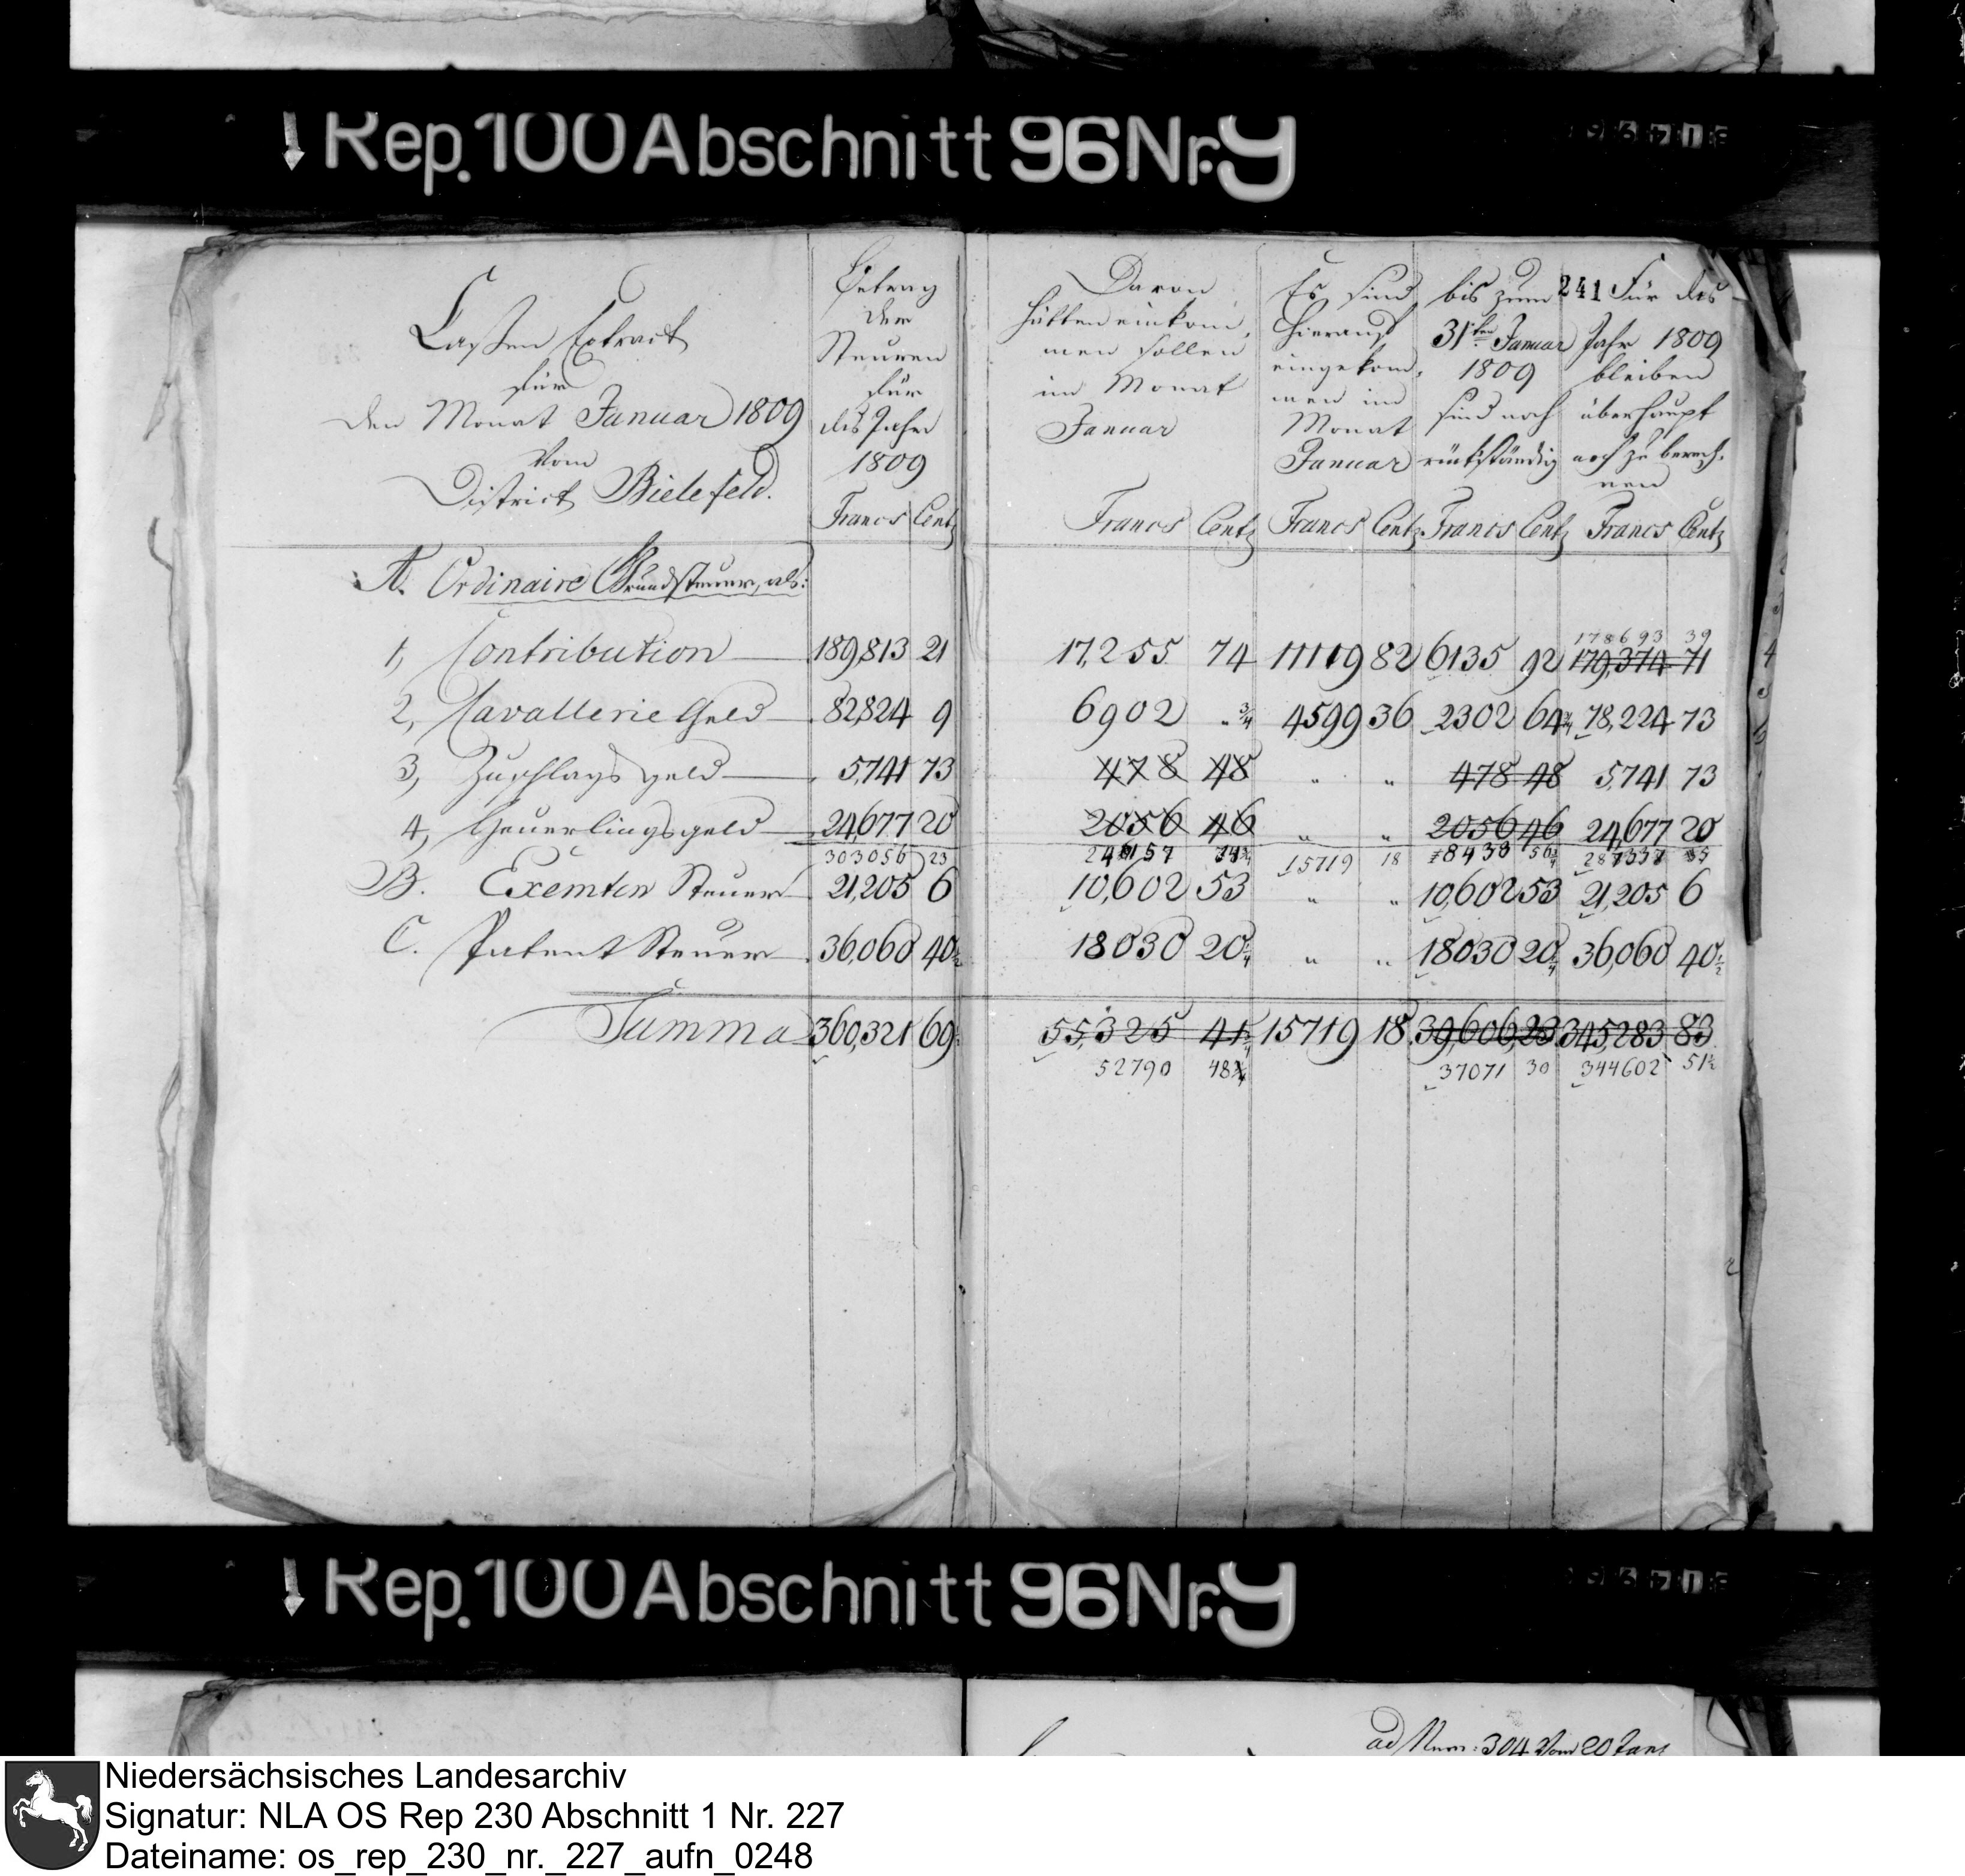 Rep. 100 Abschnitt 96 Nr. 9
241
Cassen Extract
für
den Monat Januar 1809
vom
District Bielefeld.
Betrag
der
Steuren
für
das Jahr
1809
Francs Cent
Davon
hätten einkom,
men sollen
im Monat
Januar
Francs Cent
Es sind
hierauf
eingekom,
men im
Monat
Januar
Francs Cent
bis zum
31ten Januar
1809
sind noch
rückständig
Francs Cent
Für das
Jahr 1809
bleiben
überhaupt
noch zu berech,
nen
Francs Cent
A. Ordinaire Grundsteuer, als:
178693 39
1, Contribution 189,813 21 17,255 74 11119 82 6135 92 179,374 71
2, Cavallerie Geld 82,824 9 6902 " 3/4 4599 36 2302 64 3/4 78,224 73
3, Zuschlags geld 5,741 73 478 48 " " 478 48 5,741 73
4, Heuerlingsgeld 24,677 20 2056 46 " " 2056 46 24,677 20
303056 23 24157 74 3/4 15719 18 8438 56 3/4
B. Exemten Steuer 21,205 6 10,602 53 " " 10,602 53 21,205 6
C. Patent Steuer 36,060 40 1/2 18030 20 1/4 " " 18030 20 1/4 36,060 40 1/2
Summa 360,321 69 1/2 55,325 41 15719 18 39,606 23 345,283 83
52790 48 37071 30 344602 51 1/2
Rep. 100 Abschnitt 96 Nr. 9
ad Num: 304 vom 20 Janr
Niedersächsisches Landesarchiv
Signatur: NLA OS Rep 230 Abschnitt 1 Nr. 227
Dateiname: os_rep_230_nr._227_aufn_0248